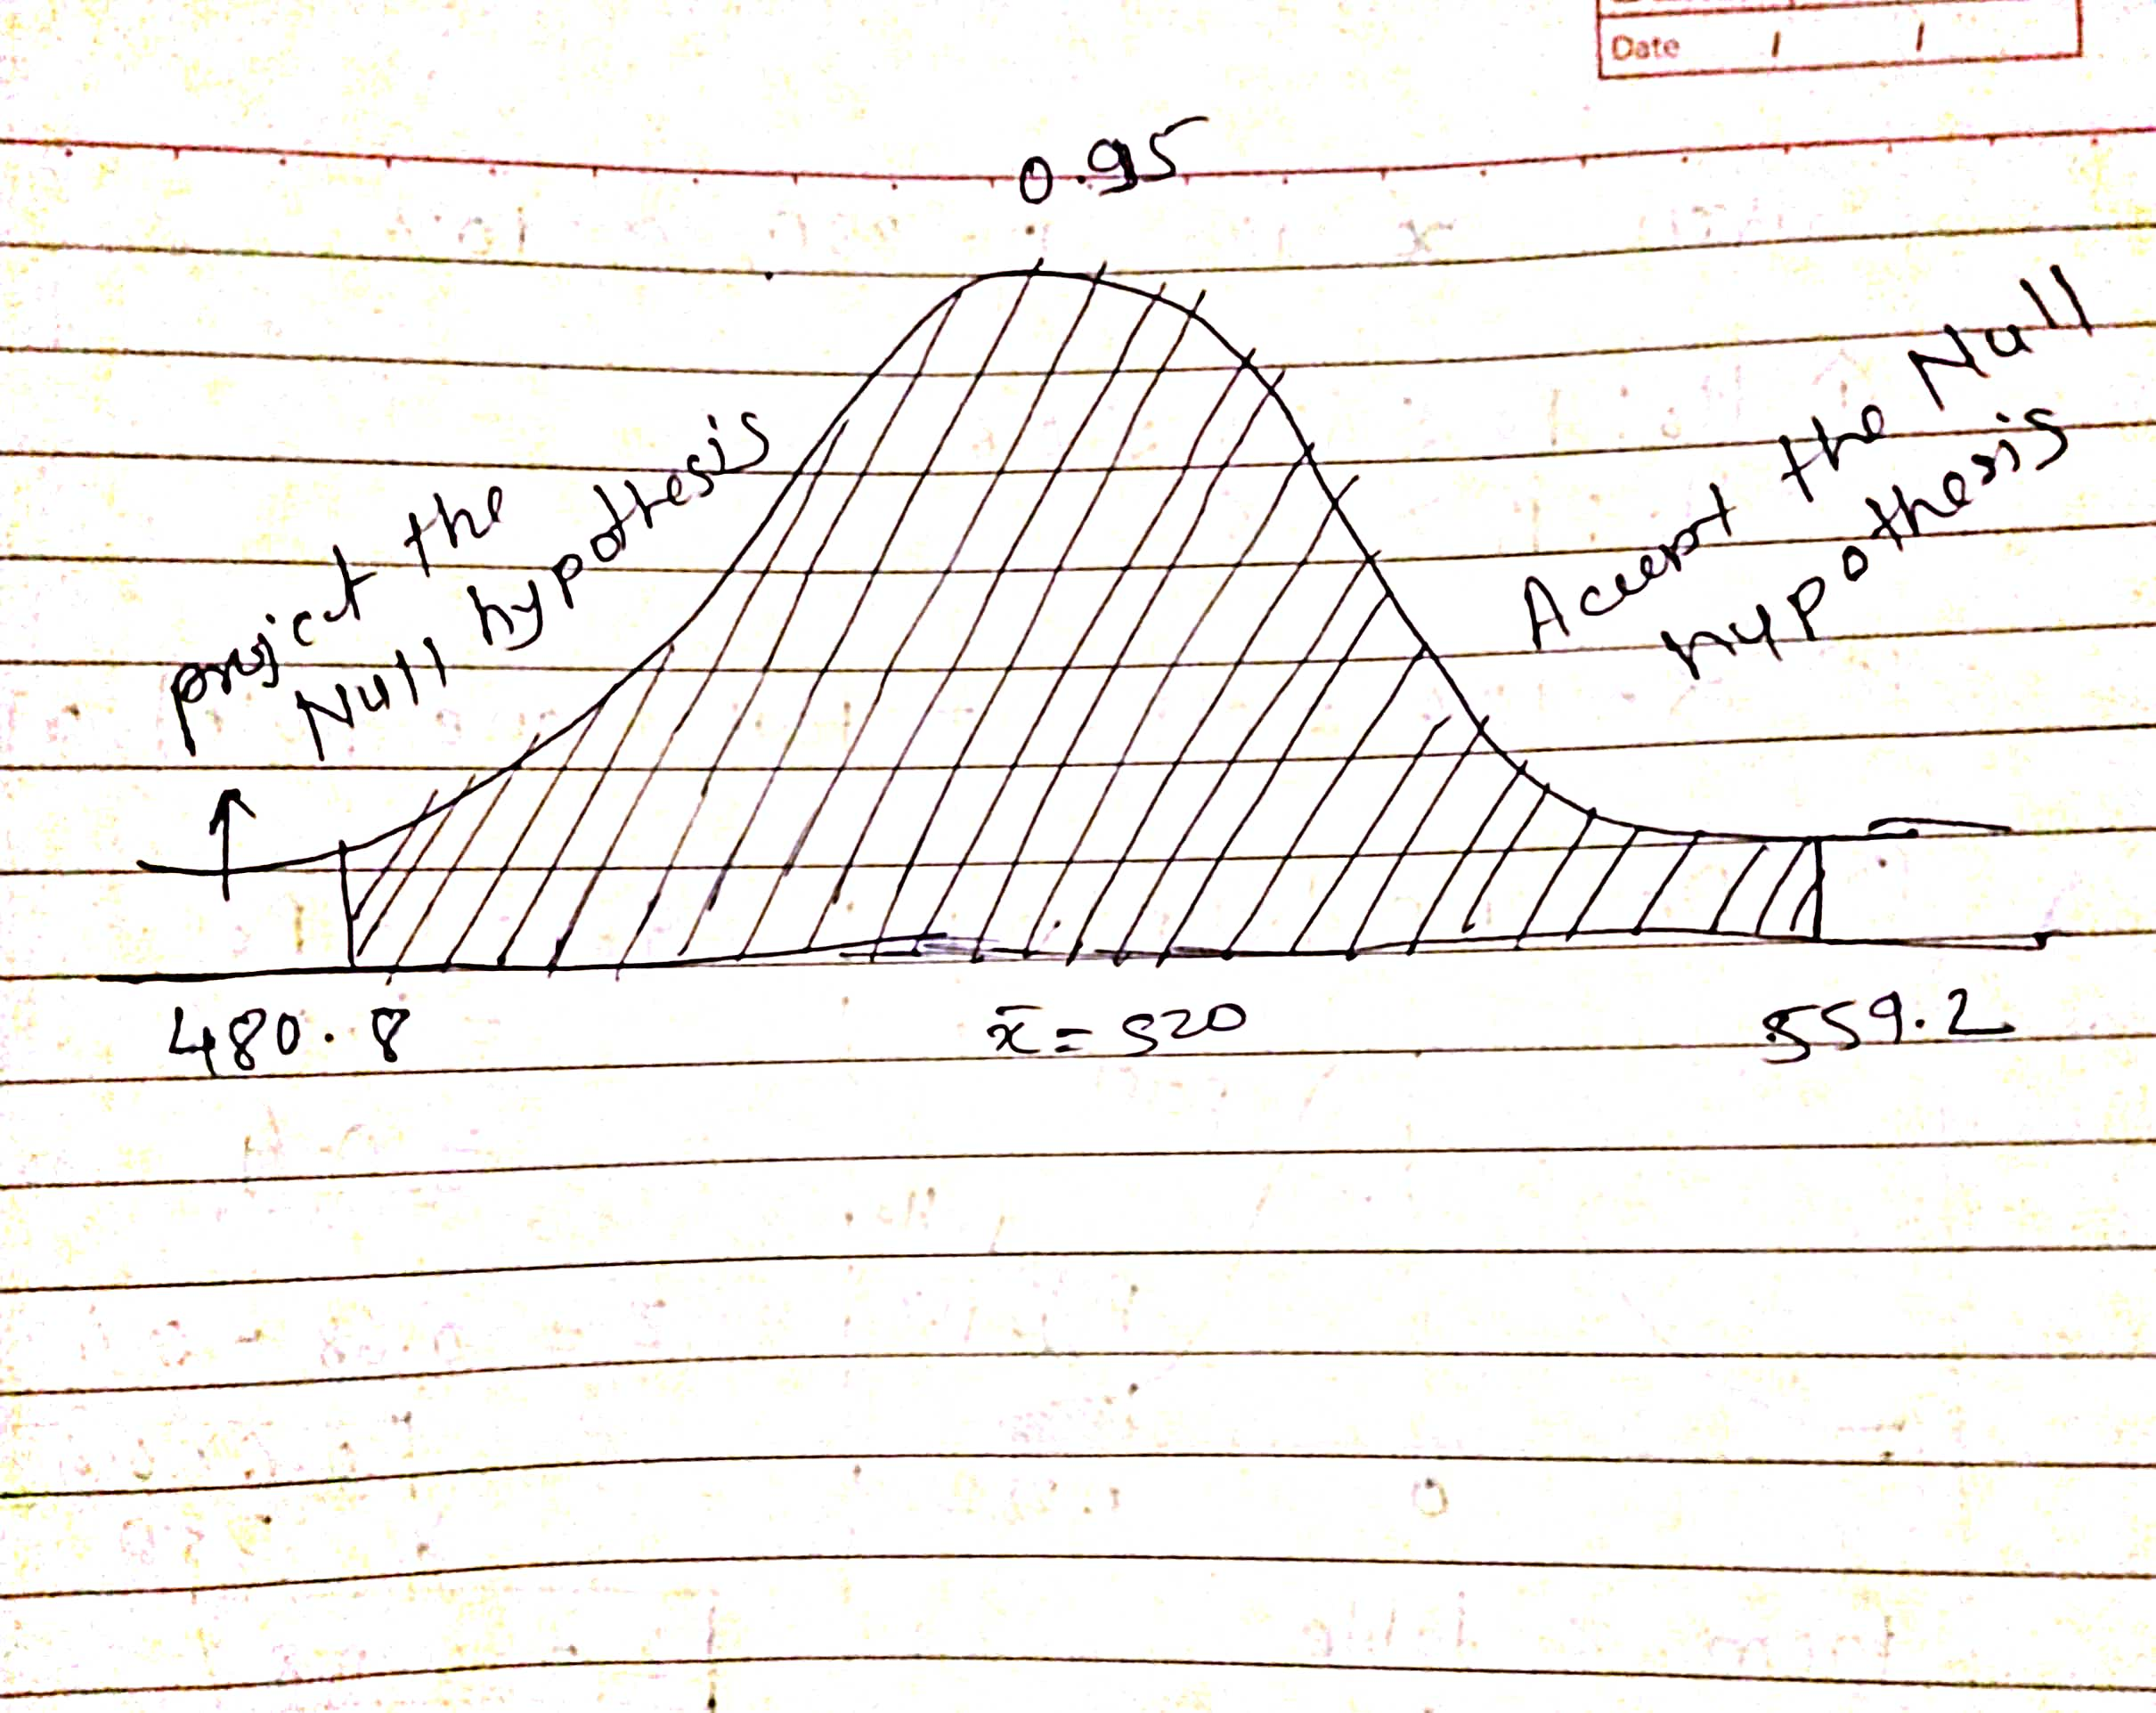 Date / /
0.95
project the
Null hypothesis
Accept the Null
hypothesis
480.8
x̄ = 520
559.2